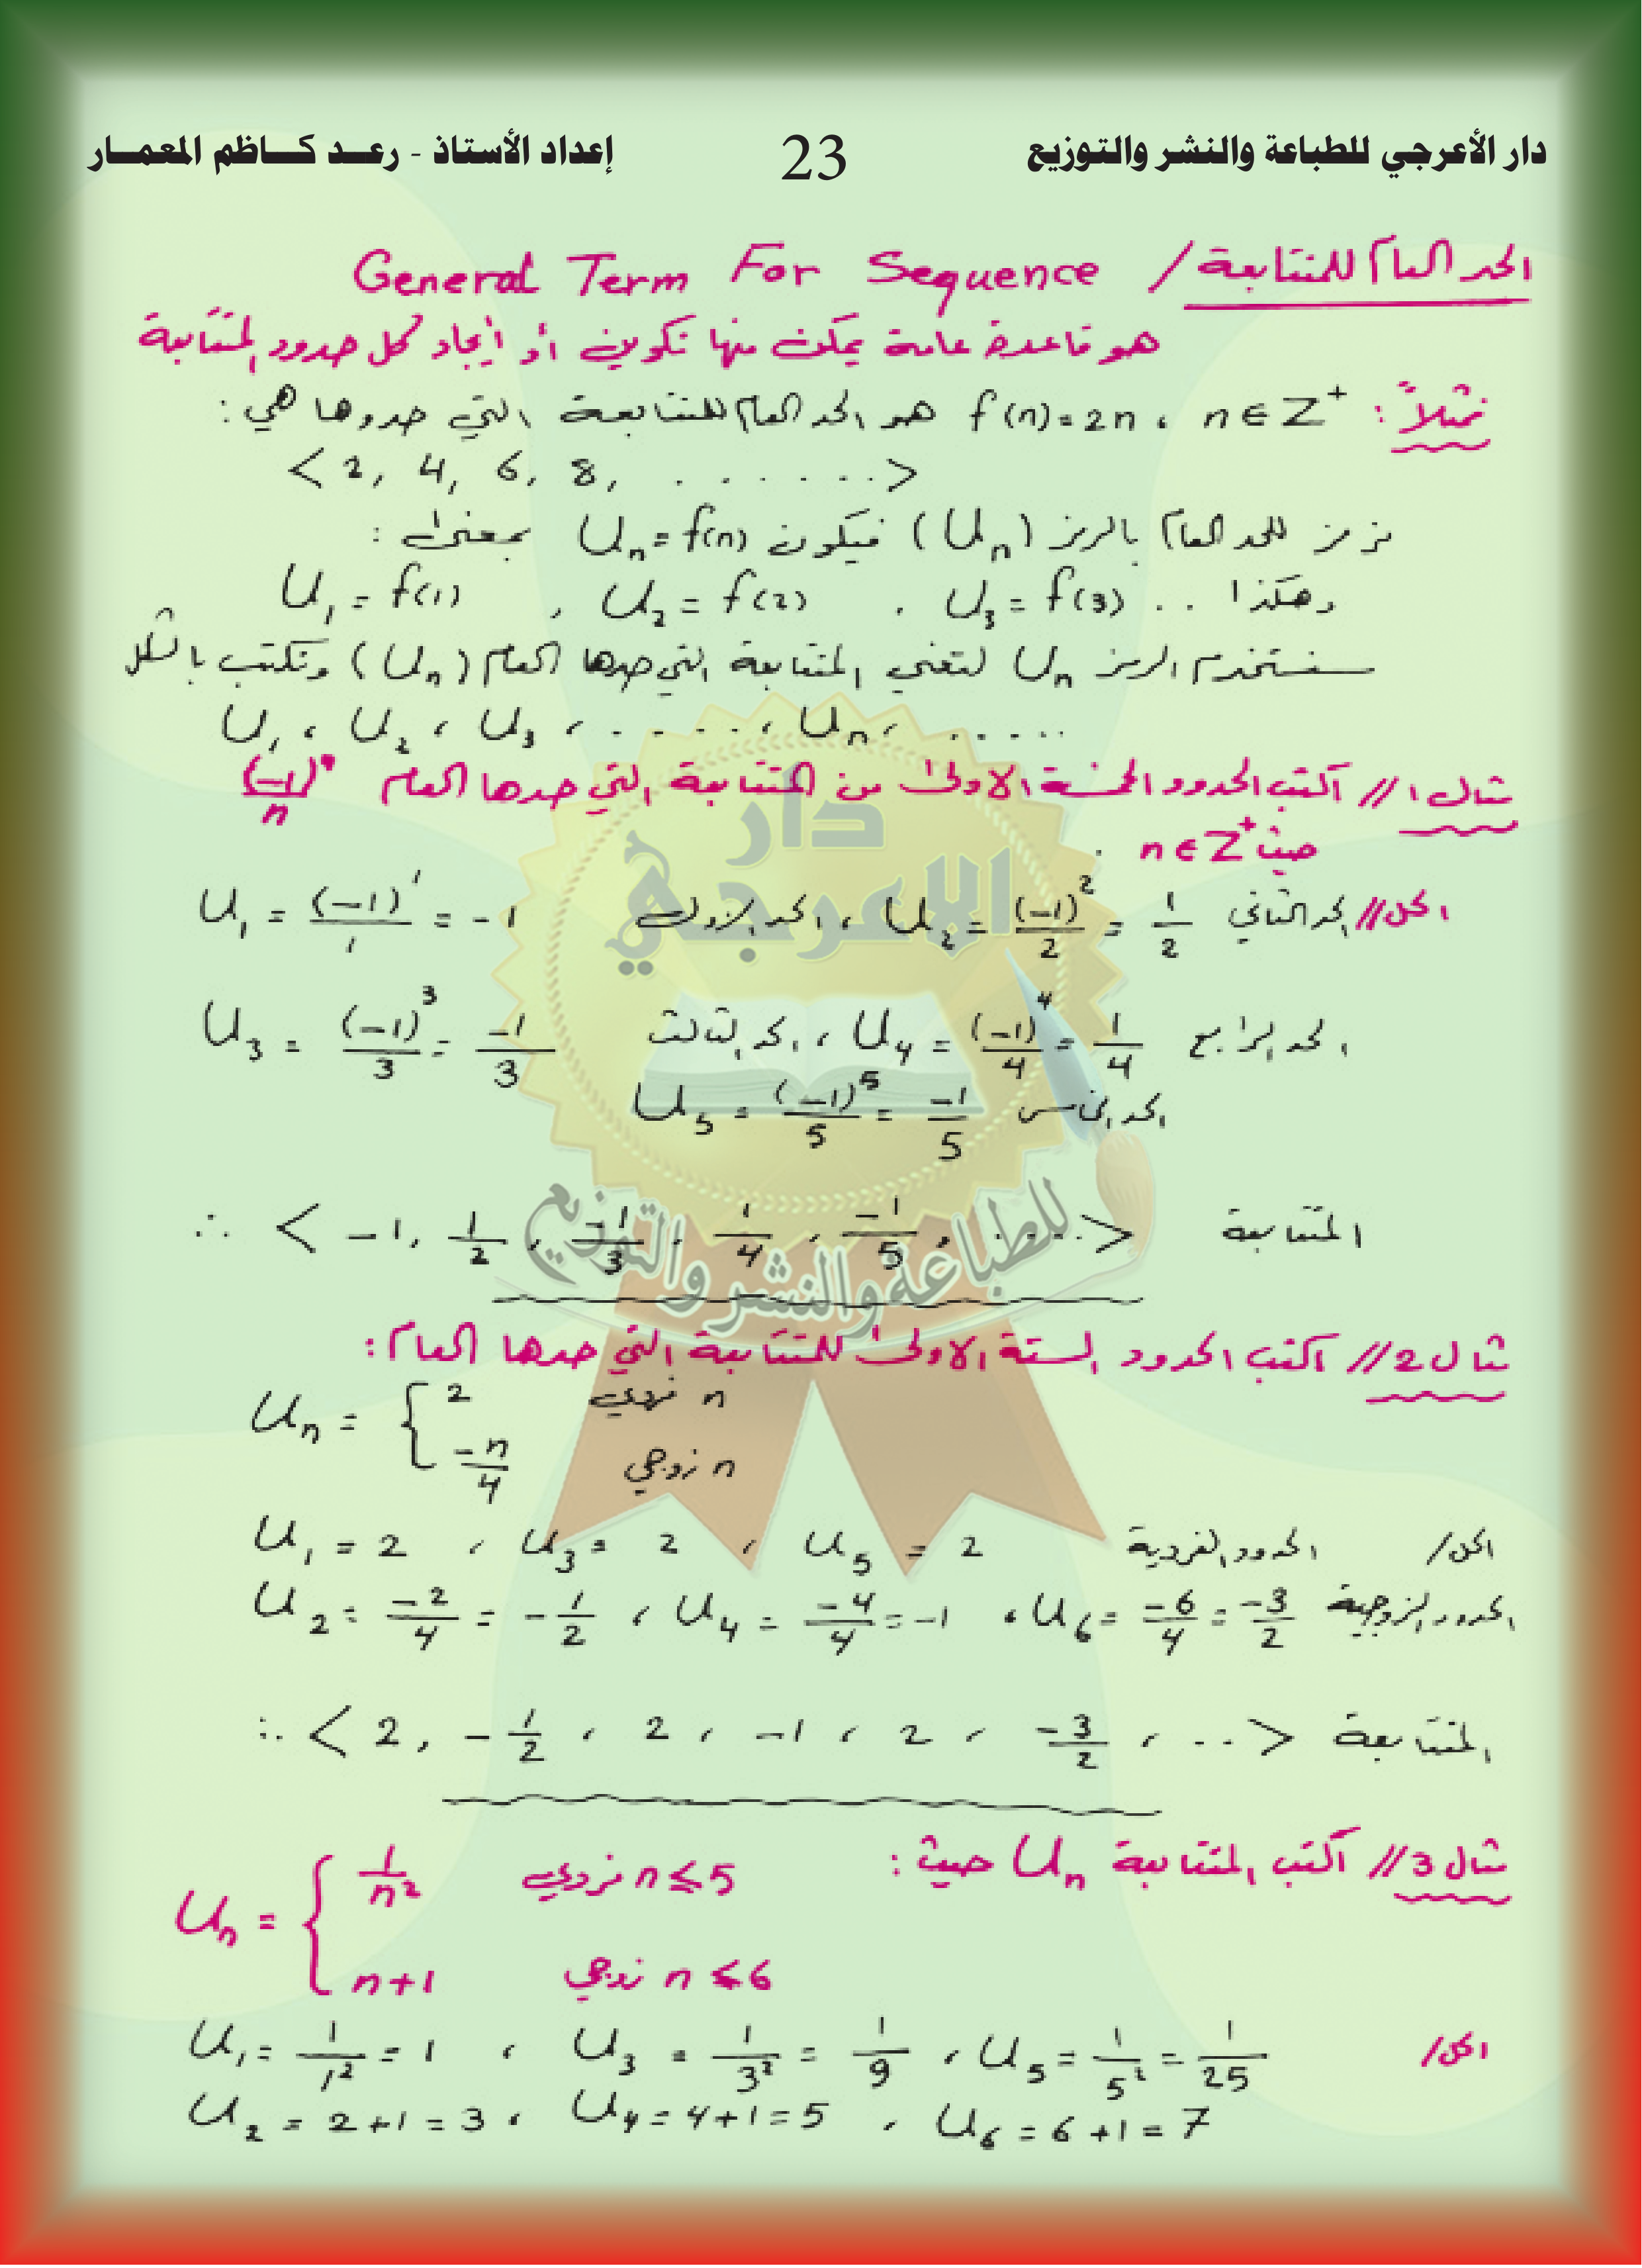 دار الأعرجي للطباعة والنشر والتوزيع 23 إعداد الأستاذ - رعد كاظم المعمار
الحد العام للمتتابعة / General Term For Sequence
هو قاعدة عامة يمكن منها تكوين أو أيجاد كل حدود المتتابعة
فمثلاً : f(n)=2n ، n∈Z⁺ هو الحد العام للمتتابعة التي حدودها هي :
< 2, 4, 6, 8, . . . . . . >
نرمز للحد العام بالرمز (Uₙ) فيكون Uₙ = f(n) بمعنى :
U₁ = f(1) , U₂ = f(2) , U₃ = f(3) .. وهكذا
سنستخدم الرمز Uₙ لتعني المتتابعة التي حدها العام (Uₙ) وتكتب بالشكل
U₁ , U₂ , U₃ , . . . . , Uₙ , . . . . .
مثال 1 // أكتب الحدود الخمسة الاولى من المتتابعة التي حدها العام (-1)ⁿ/n
حيث n∈Z⁺ .
الحل // U₁ = (-1)¹/1 = -1 الحد الاول ، U₂ = (-1)²/2 = 1/2 الحد الثاني
U₃ = (-1)³/3 = -1/3 الحد الثالث ، U₄ = (-1)⁴/4 = 1/4 الحد الرابع
U₅ = (-1)⁵/5 = -1/5 الحد الخامس
∴ < -1, 1/2, -1/3, 1/4, -1/5, . . . . > المتتابعة
دار الاعرجي
للطباعة والنشر والتوزيع
مثال 2 // أكتب الحدود الستة الاولى للمتتابعة التي حدها العام :
Uₙ = { 2 n فردي
-n/4 n زوجي
الحل / الحدود الفردية U₁ = 2 ، U₃ = 2 ، U₅ = 2
الحدود الزوجية U₂ = -2/4 = -1/2 ، U₄ = -4/4 = -1 ، U₆ = -6/4 = -3/2
∴ < 2, -1/2 , 2 , -1 , 2 , -3/2 , .. > المتتابعة
مثال 3 // أكتب المتتابعة Uₙ حيث :
Uₙ = { 1/n² فردي n ≤ 5
n+1 زوجي n ≤ 6
الحل / U₁ = 1/1² = 1 ، U₃ = 1/3² = 1/9 ، U₅ = 1/5² = 1/25
U₂ = 2+1 = 3 ، U₄ = 4+1 = 5 ، U₆ = 6+1 = 7